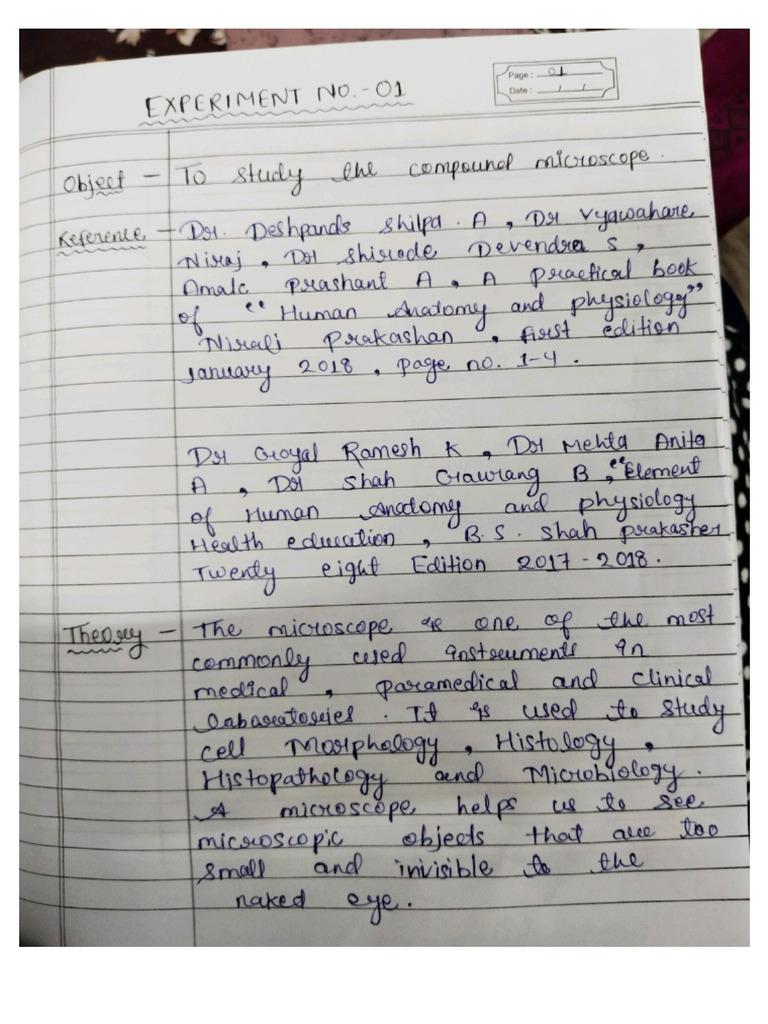 Page: 01
EXPERIMENT NO.-01
Date: / /
Object - To study the compound microscope.
Reference - Dr. Deshpands Shilpa. A, Dr Vyawahare
Niraj, Dr Shirode Devendra S,
Amale Prashant A, A Practical book
of "Human Anatomy and physiology"
Nirali Prakashan, first edition
January 2018, page no. 1-4.
Dr Goyal Ramesh K, Dr Mehta Anita
A, Dr Shah Gaurang B, "Element
of Human Anatomy and physiology
Health education, B.S. Shah prakasher
Twenty eight Edition 2017-2018.
Theory - The microscope is one of the most
commonly used instruments in
medical, paramedical and clinical
labaratories. It is used to study
cell Morphology, Histology,
Histopathology and Microbiology.
A microscope helps us to see
microscopic objects that are too
small and invisible to the
naked eye.